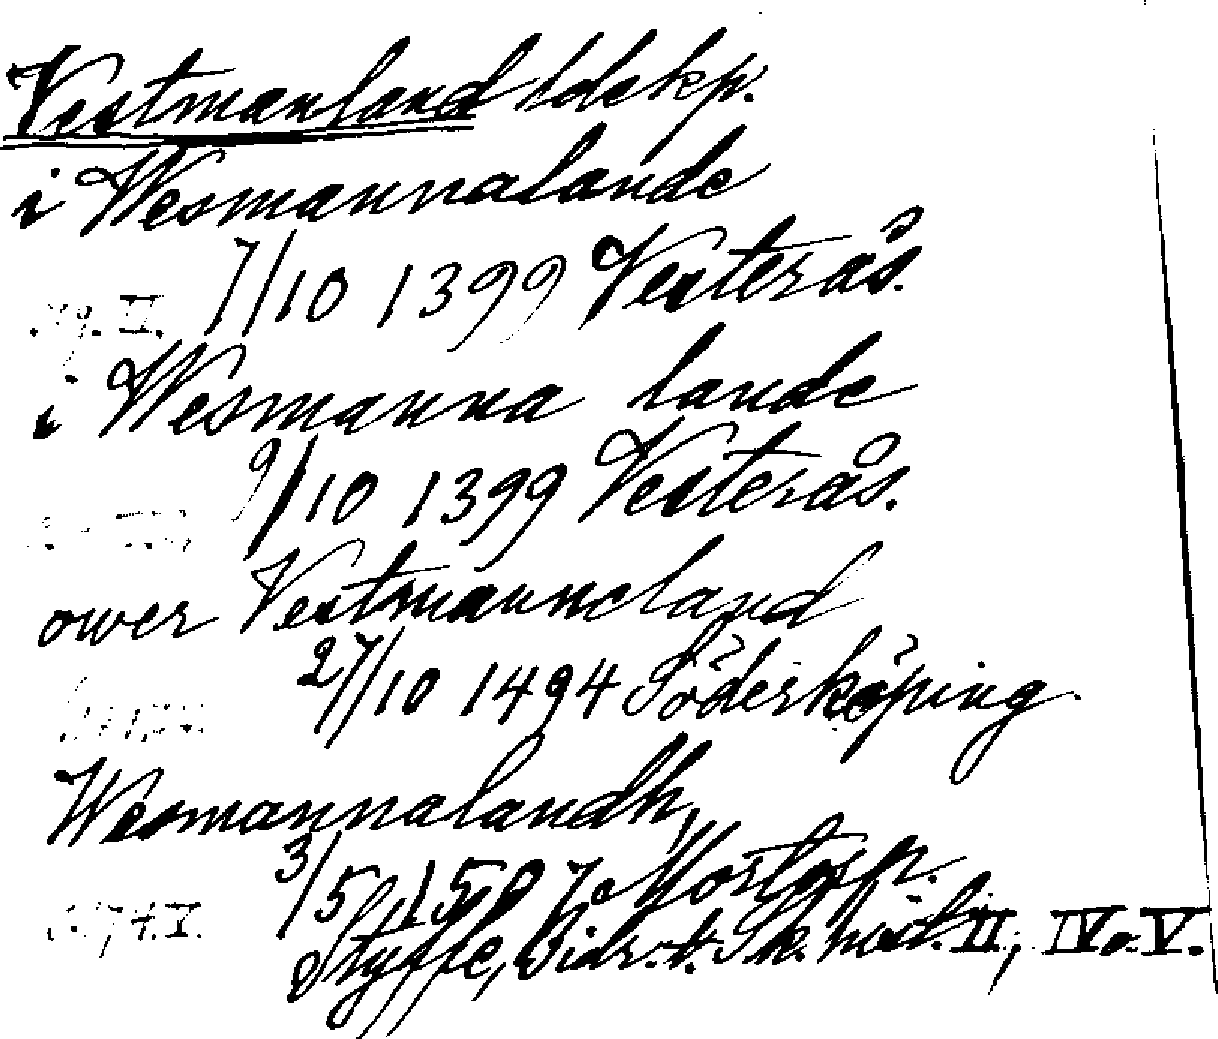 Vestmanland ldskp.
i Wesmannalande
7/10 1399 Vesterås.
i Wesmanna lande
9/10 1399 Vesterås.
ower Vestmanneland
27/10 1494 Söderköping
Wesmannalandh,
3/5 1507
Styffe, Bidr. t. Sk. hist. II, IV o. V.